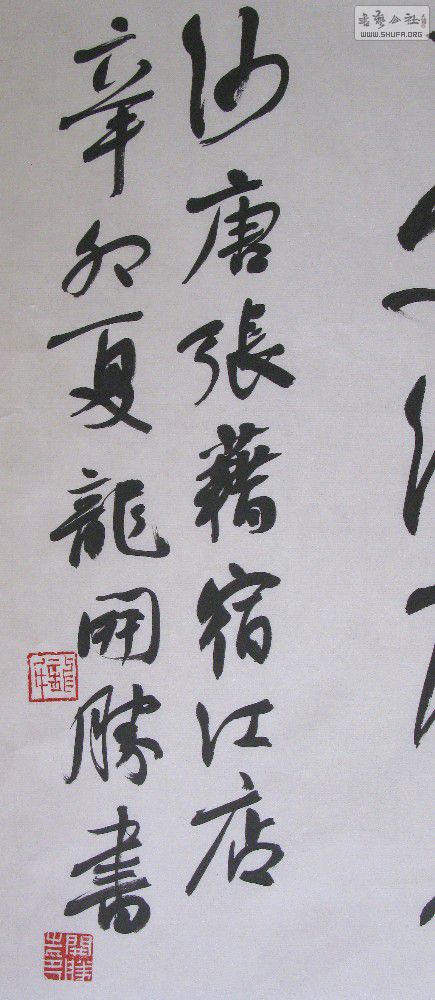 書藝公社
WWW.SHUFA.ORG
沙唐張藉宿江店
辛卯夏龍開勝書